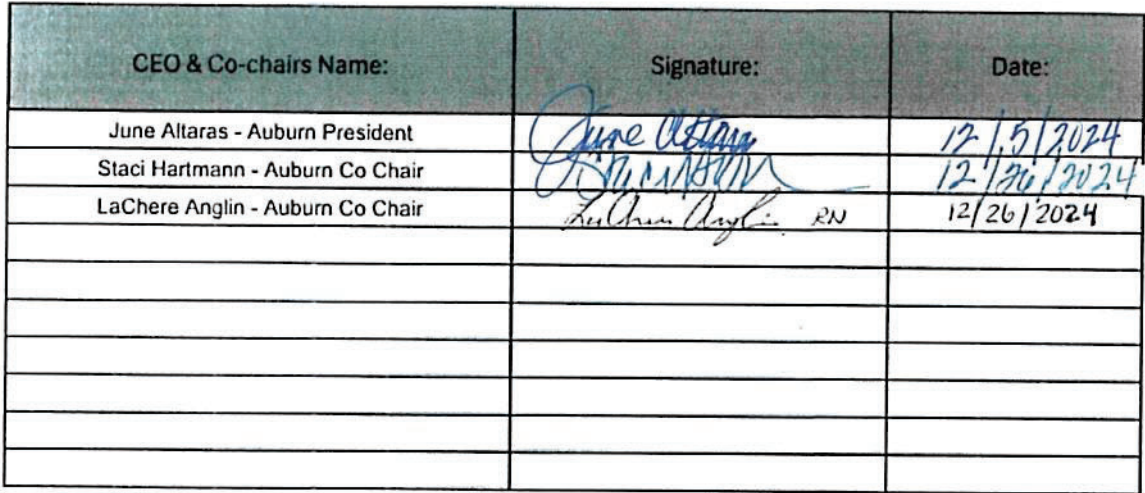 CEO & Co-chairs Name: Signature: Date:
June Altaras - Auburn President June Altaras 12/5/2024
Staci Hartmann - Auburn Co Chair 12/26/2024
LaChere Anglin - Auburn Co Chair LaChere Anglin RN 12/26/2024